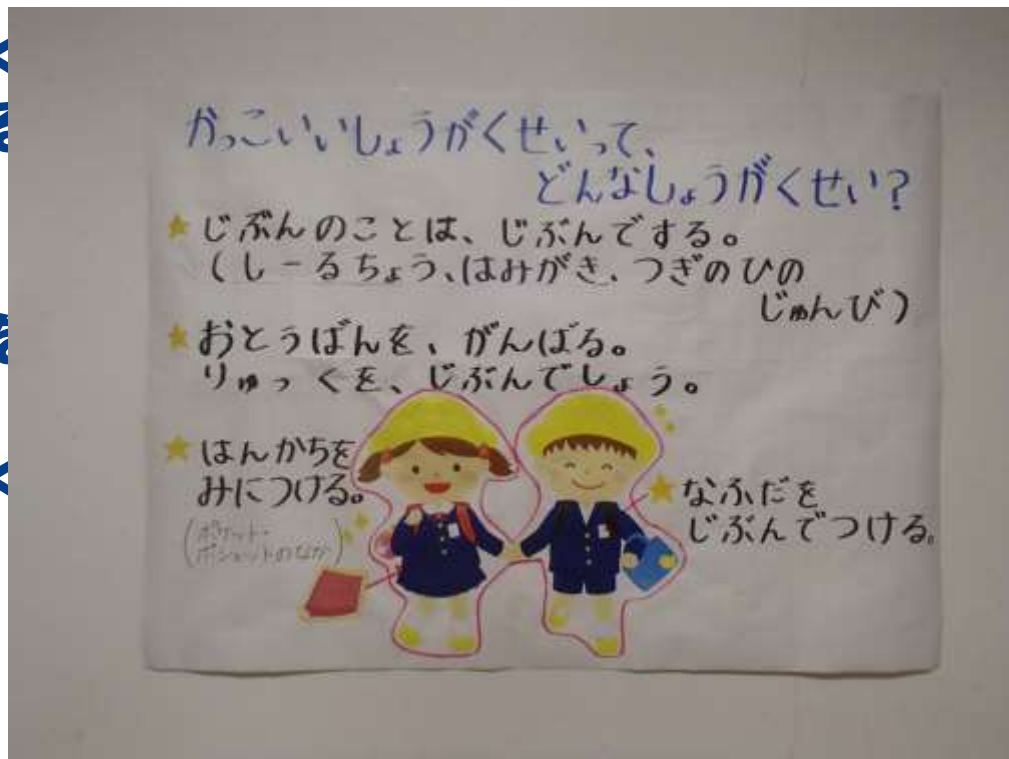 かっこいいしょうがくせいって、
どんなしょうがくせい?
じぶんのことは、じぶんでする。
(しーるちょう、はみがき、つぎのひの
じゅんび)
おとうばんを、がんばる。
りゅっくを、じぶんでしょう。
はんかちを
みにつける。
(ポケット・
ポシェットのなか)
なふだを
じぶんでつける。